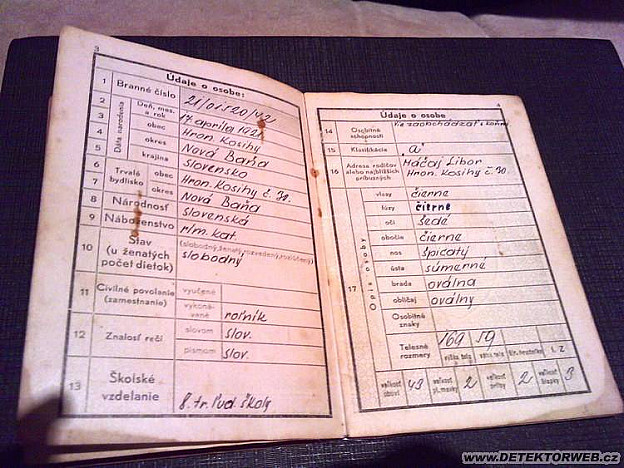 3
Údaje o osobe:
1 Branné číslo 21/01520/42
2 Deň, mes. a rok 14. apríla 1921
3 Dáta narodenia obec Hron. Kosihy
4 okres Nová Baňa
5 krajina Slovensko
6 Trvalé bydlisko obec Hron. Kosihy č. 30.
7 okres Nová Baňa
8 Národnosť Slovenská
9 Náboženstvo rím. kat.
10 Stav (u ženatých počet dietok) (slobodný, ženatý, rozvedený, rozlúčený)
slobodný
11 Civilné povolanie (zamestnanie) vyučené
vykonávané roľník
12 Znalosť rečí slovom slov.
písmom slov.
13 Školské vzdelanie 8. tr. ľud. školy
4
Údaje o osobe:
14 Osobitné schopnosti Vie zaobchádzať s koňmi
15 Klasifikácia „A"
16 Adresa rodičov alebo najbližších príbuzných Háčaj Libor
Hron. Kosihy č. 30.
17 Opis osoby
vlasy čierne
fúzy čierne
oči šedé
obočie čierne
nos špicatý
ústa súmerné
brada oválna
obličaj oválny
Osobitné znaky
Telesné rozmery 169 59
výška tela váha tela šír. hrudníka
veľkosť obuvi 43 veľkosť pl. masky 2 veľkosť prilby 2 veľkosť čiapky 3
WWW.DETEKTORWEB.CZ